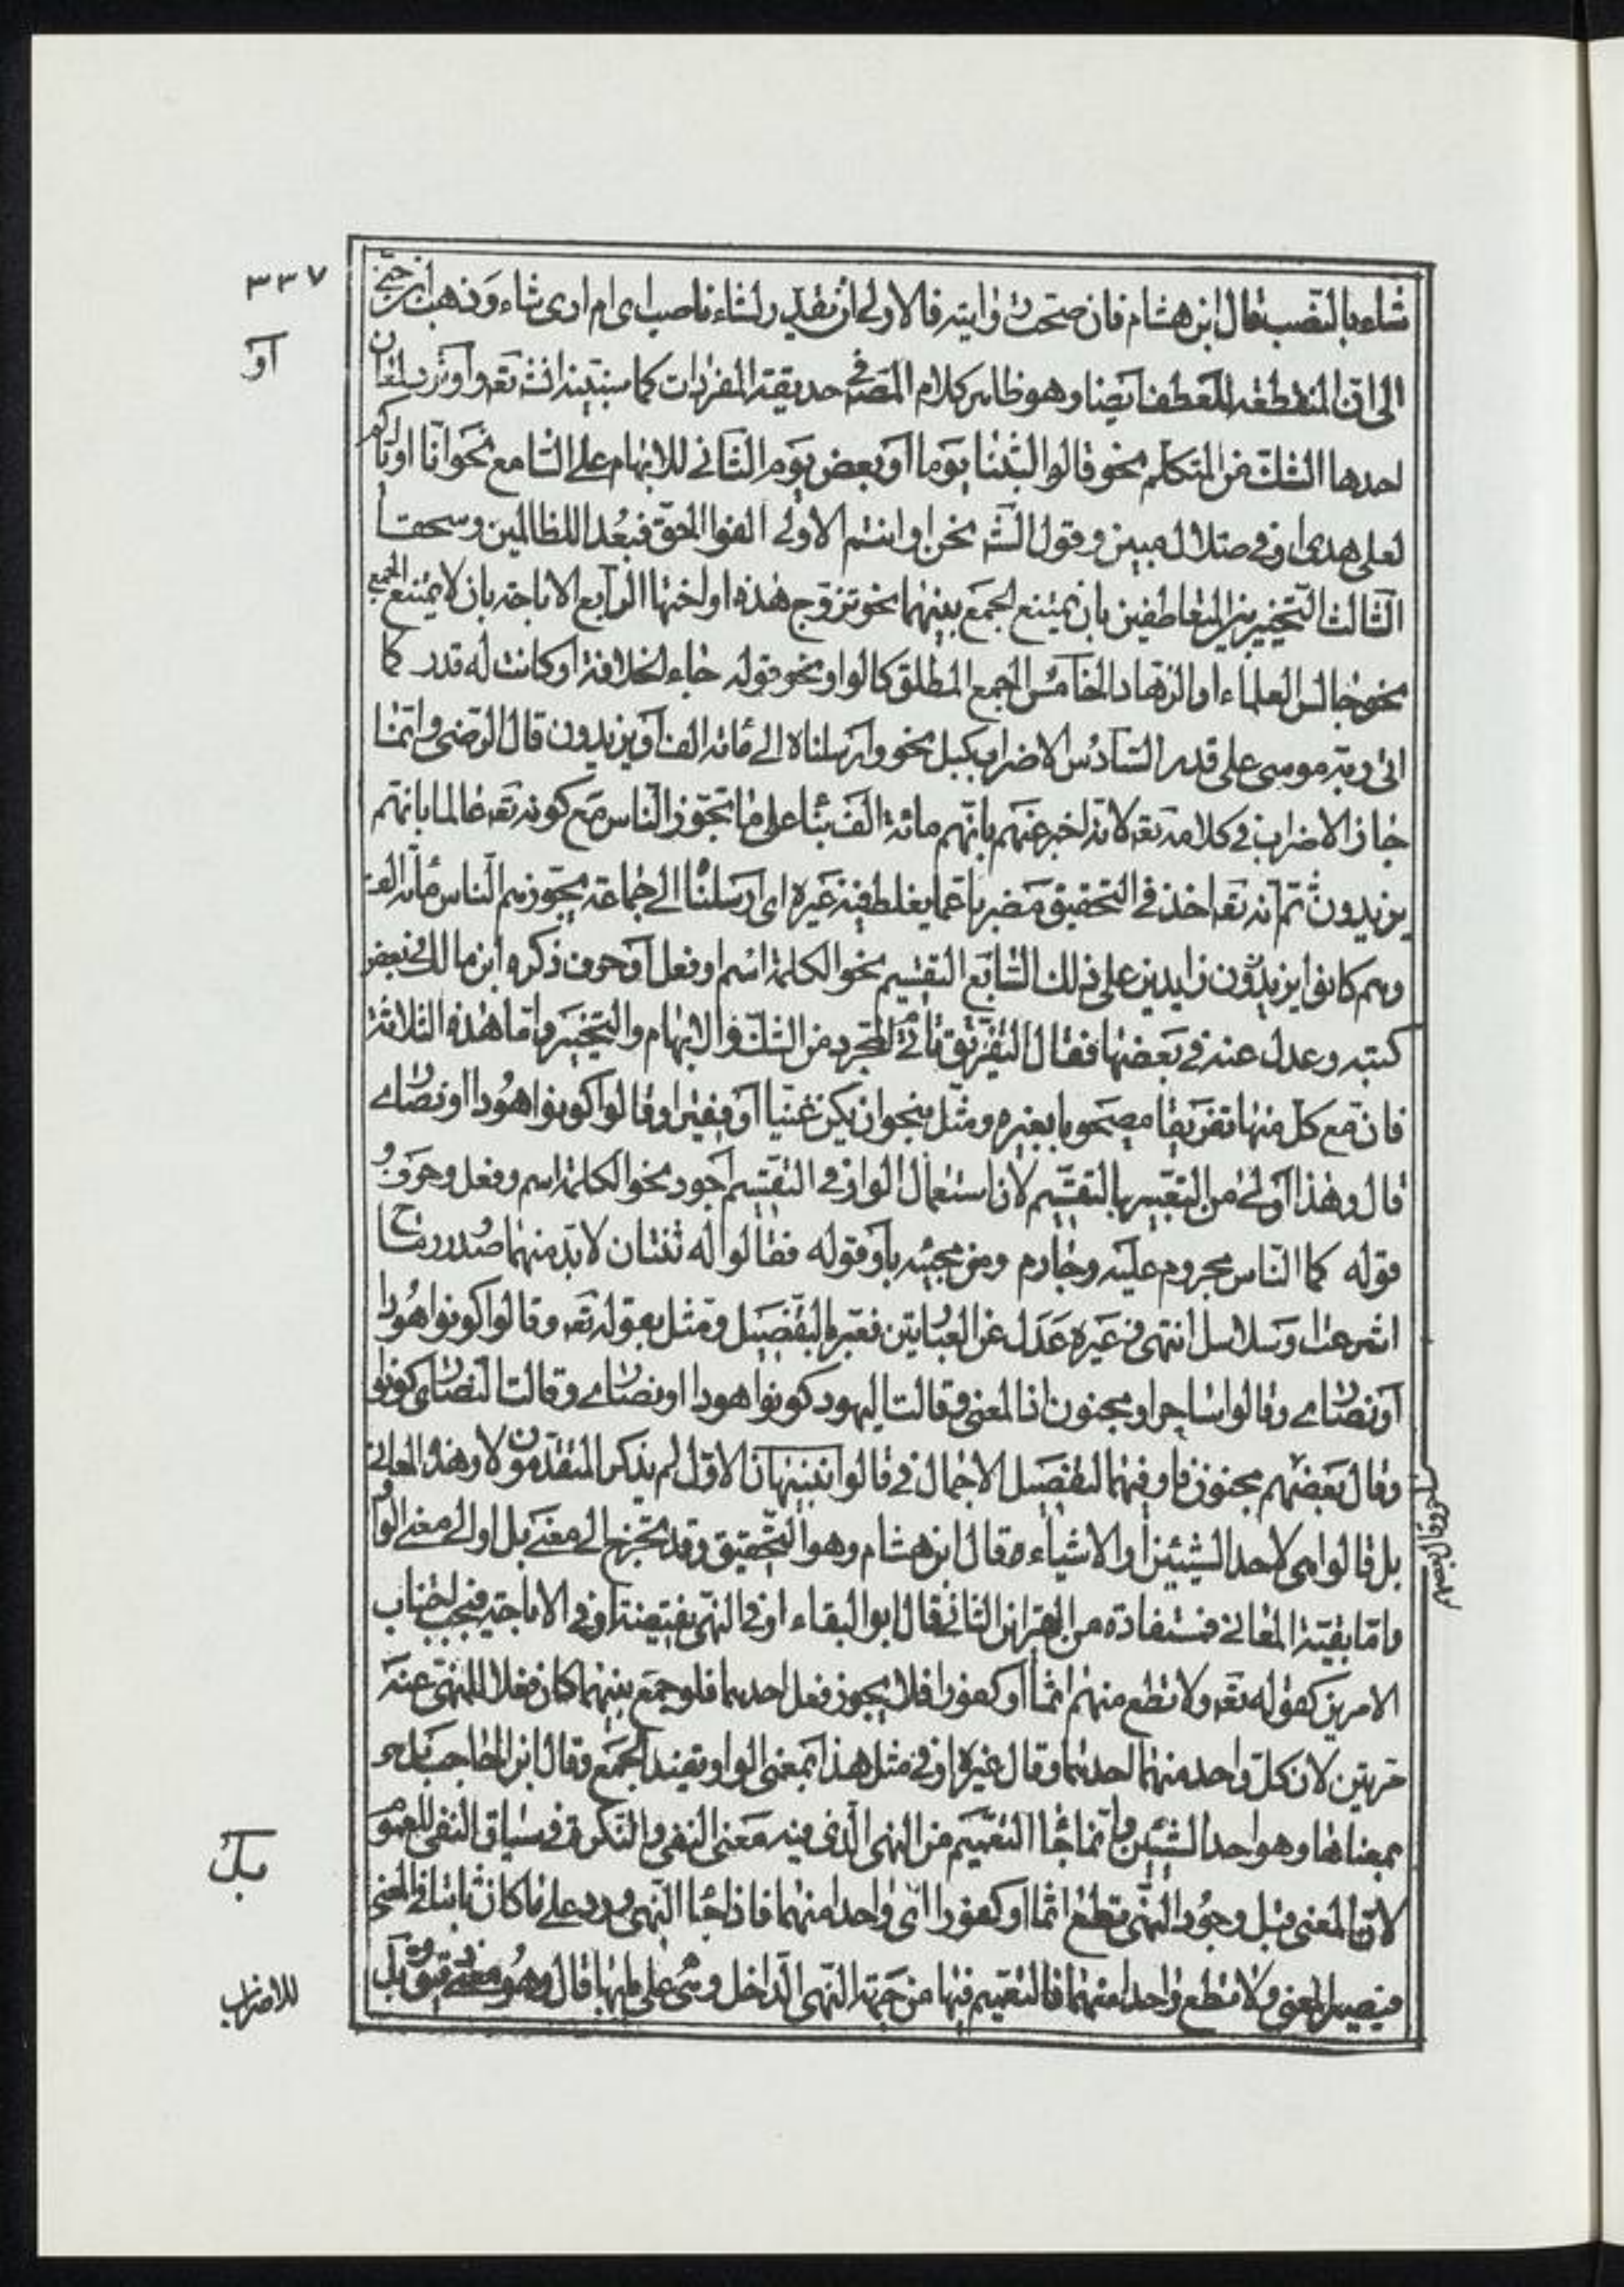 ٣٣٧
شاء بالنصب قال ابن هشام فان صحت روايته فالاولى ان يقدر لشاء ناصب اى ام ارى شاء وذهب ابن جنى
أو
الى ان المنقطعة للعطف ايضا وهو ظاهر كلام المصه فى حديقة المفردات كما سنبينه انشه تعه واو ترد لمعان
احدها الشك من المتكلم نحو قالوا لبثنا يوما او بعض يوم الثانى للابهام على السامع نحو انا او اياكم
لعلى هدى او فى ضلال مبين وقول الشه نحن او انتم الاولى الفوا الحق فبعدا للظالمين وسحقا
الثالث التخيير بين المتعاطفين بان يمتنع الجمع بينهما نحو تزوج هذه او اختها الرابع الاباحة بان لا يمتنع الجمع
نحو جالس العلماء او الزهاد الخامس الجمع المطلق كالواو نحو قوله جاء الخلافة او كانت له قدر كما
اتى ربه موسى على قدر السادس الاضراب كبل نحو وارسلناه الى مائة الف او يزيدون قال الرضى وانما
جاز الاضراب فى كلامه تعه لانه اخبر عنهم بانهم مائة الف بناء على ما تجوز الناس مع كونه تعه عالما بانهم
يزيدون ثم انه تعه اخذ فى التحقيق مضربا عما يغلط فيه غيره اى ارسلنا الى جماعة يجوزهم الناس مائة الف
وهم كانوا يزيدون زايدين على ذلك السابع التقسيم نحو الكلمة اسم او فعل او حرف ذكره ابن مالك فى بعض
كتبه وعدل عنه فى بعضها فقال التفريق المجرد من الشك والابهام والتخيير واما هذه الثلاثة
فان مع كل منها تفريقا مصحوبا بغيره ومثل بنحو ان يكن غنيا او فقيرا وقالوا كونوا هودا او نصارى
قال وهذا اولى من التعبير بالتقسيم لان استعمال الواو فى التقسيم اجود نحو الكلمة اسم وفعل وحرف و
قوله كما الناس مجروم عليه وجارم ومن مجيئه باو قوله فقالوا له ثنتان لا بد منهما صدور رماح
اشرعت او سلاسل انتهى وغيره عدل عن العبارتين فعبر بالتفصيل ومثل بقوله تعه وقالوا كونوا هودا
او نصارى وقالوا ساحر او مجنون اذ المعنى وقالت اليهود كونوا هودا او نصارى وقالت النصارى كونوا
وقال بعضهم مجنون فاو فيهما لتفصيل الاجمال فى قالوا تنبيهان الاول لم يذكر المتقدمون لاو هذه المعانى
بل قالوا هى لاحد الشيئين او الاشياء قال ابن هشام وهو التحقيق وقد تخرج الى معنى بل او الى معنى الواو
واما بقية المعانى فمستفادة من القراين الثانى قال ابو البقاء او فى النهى نقيضة او فى الاباحة فيجب اجتناب
الامرين كقوله تعه ولا تطع منهم اثما او كفورا فلا يجوز فعل احدهما فلو جمع بينهما كان فعلا للمنهى عنه
مرتين لان كل واحد منهما احدهما وقال غيره او فى مثل هذا بمعنى الواو يفيد الجمع وقال ابن الحاجب بل هو
بمعناها وهو احد الشيئين وانما جاء التعميم من النهى الذى فيه معنى النفى والنكرة فى سياق النفى للعموم
بل
لان المعنى قبل وجود النهى تطيع اثما او كفورا اى واحدا منهما فاذا جاء النهى ورد على ما كان ثابتا فى المعنى
فيصير المعنى ولا تطع واحدا منهما فالتعميم فيها من جهة النهى الداخل
للاضراب